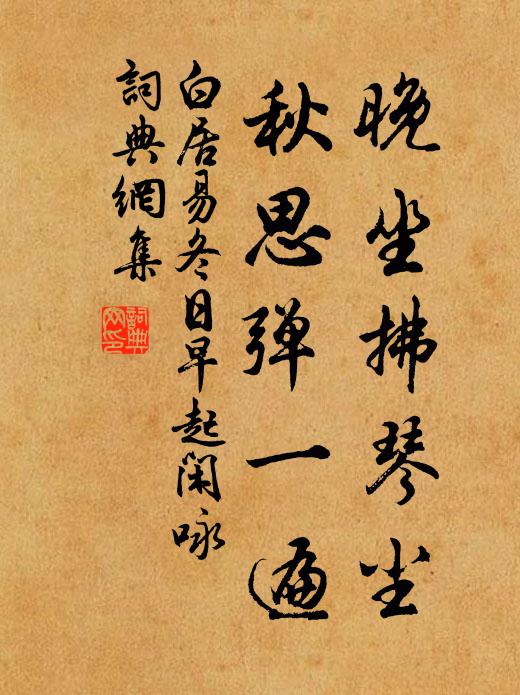 晚坐拂琴尘
秋思弹一遍
白居易冬日早起闲咏
詞典網集
詞典网印